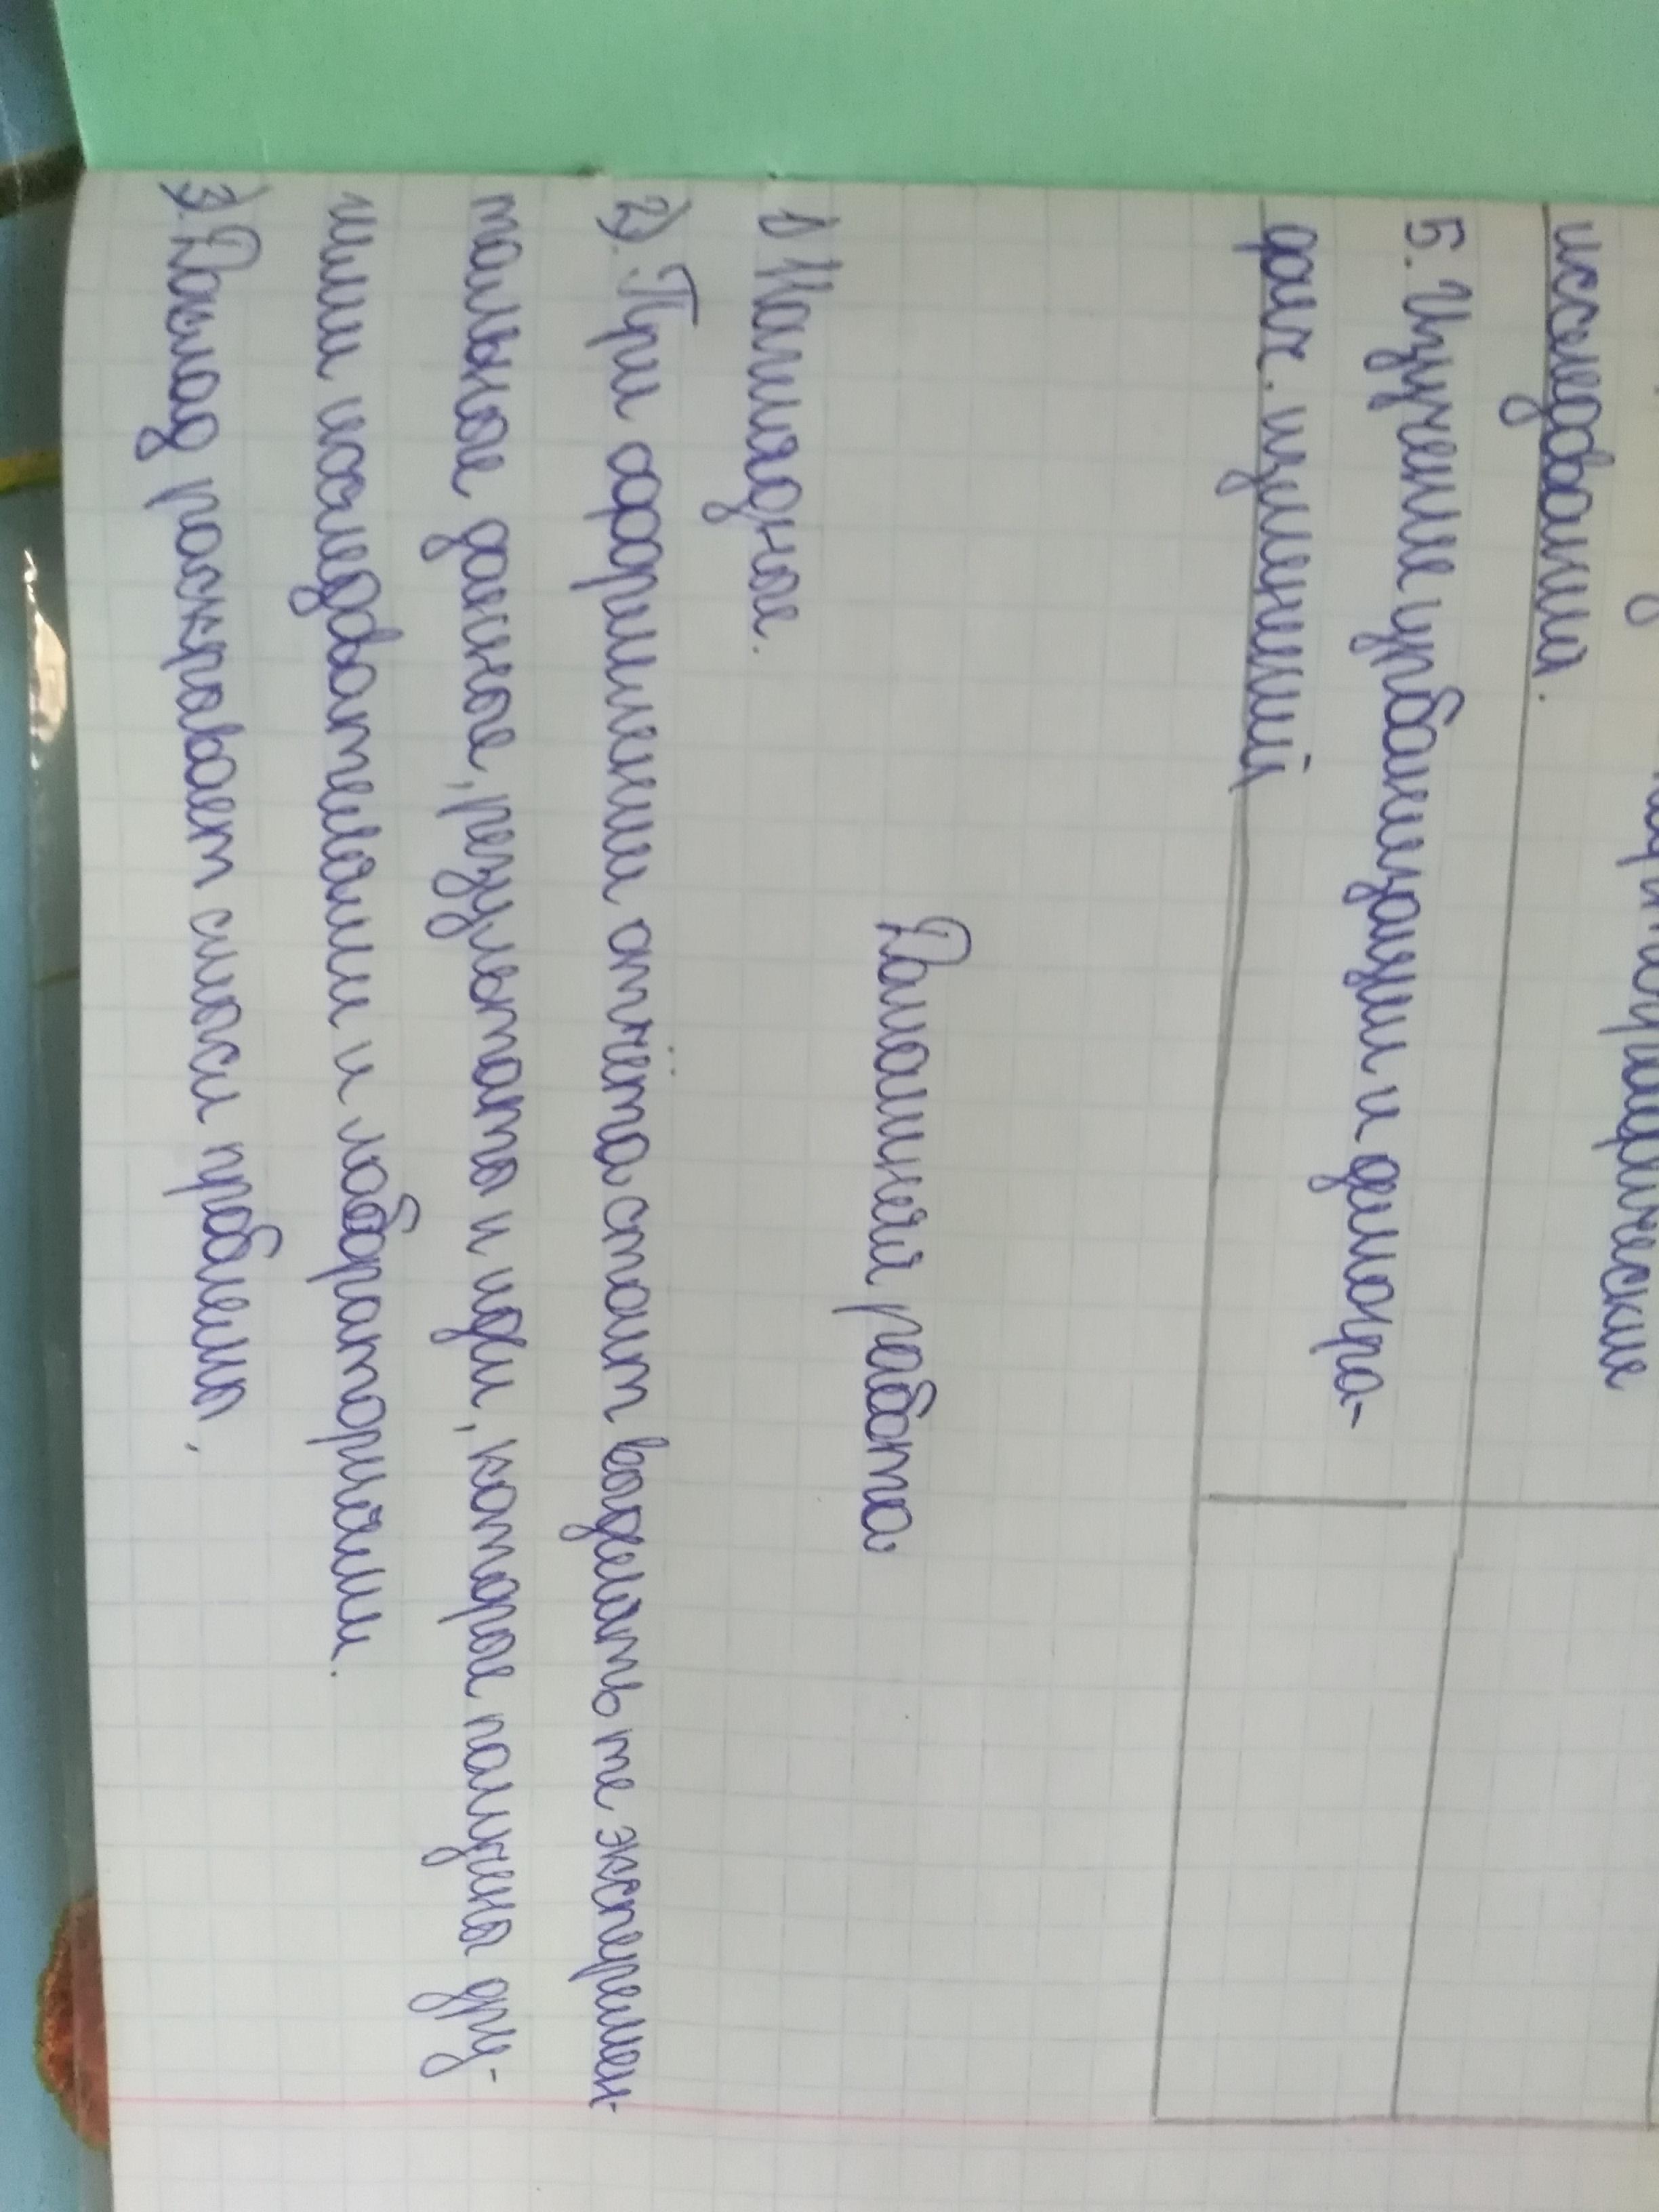 картографические
исследования.
5. Изучение урбанизации и демогра-
фич. изменений
Домашняя работа
1) Наглядные.
2). При оформлении отчёта стоит выделить те эксперемен-
тальные данные, результаты и идеи, которые получены дру-
гими исследователями и лабораториями.
3). Доклад раскрывает смысл проблемы,